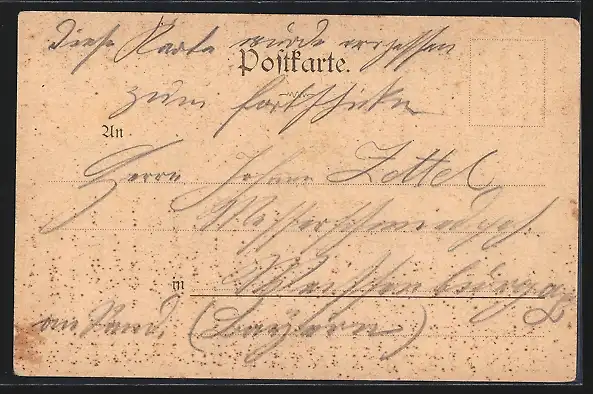 diese Karte wurde vergessen
Postkarte.
zum fortschicken
An
Herrn Johann Zottel
Messerschmiedges.
in Weissenburg
am Sand. (Bayern)